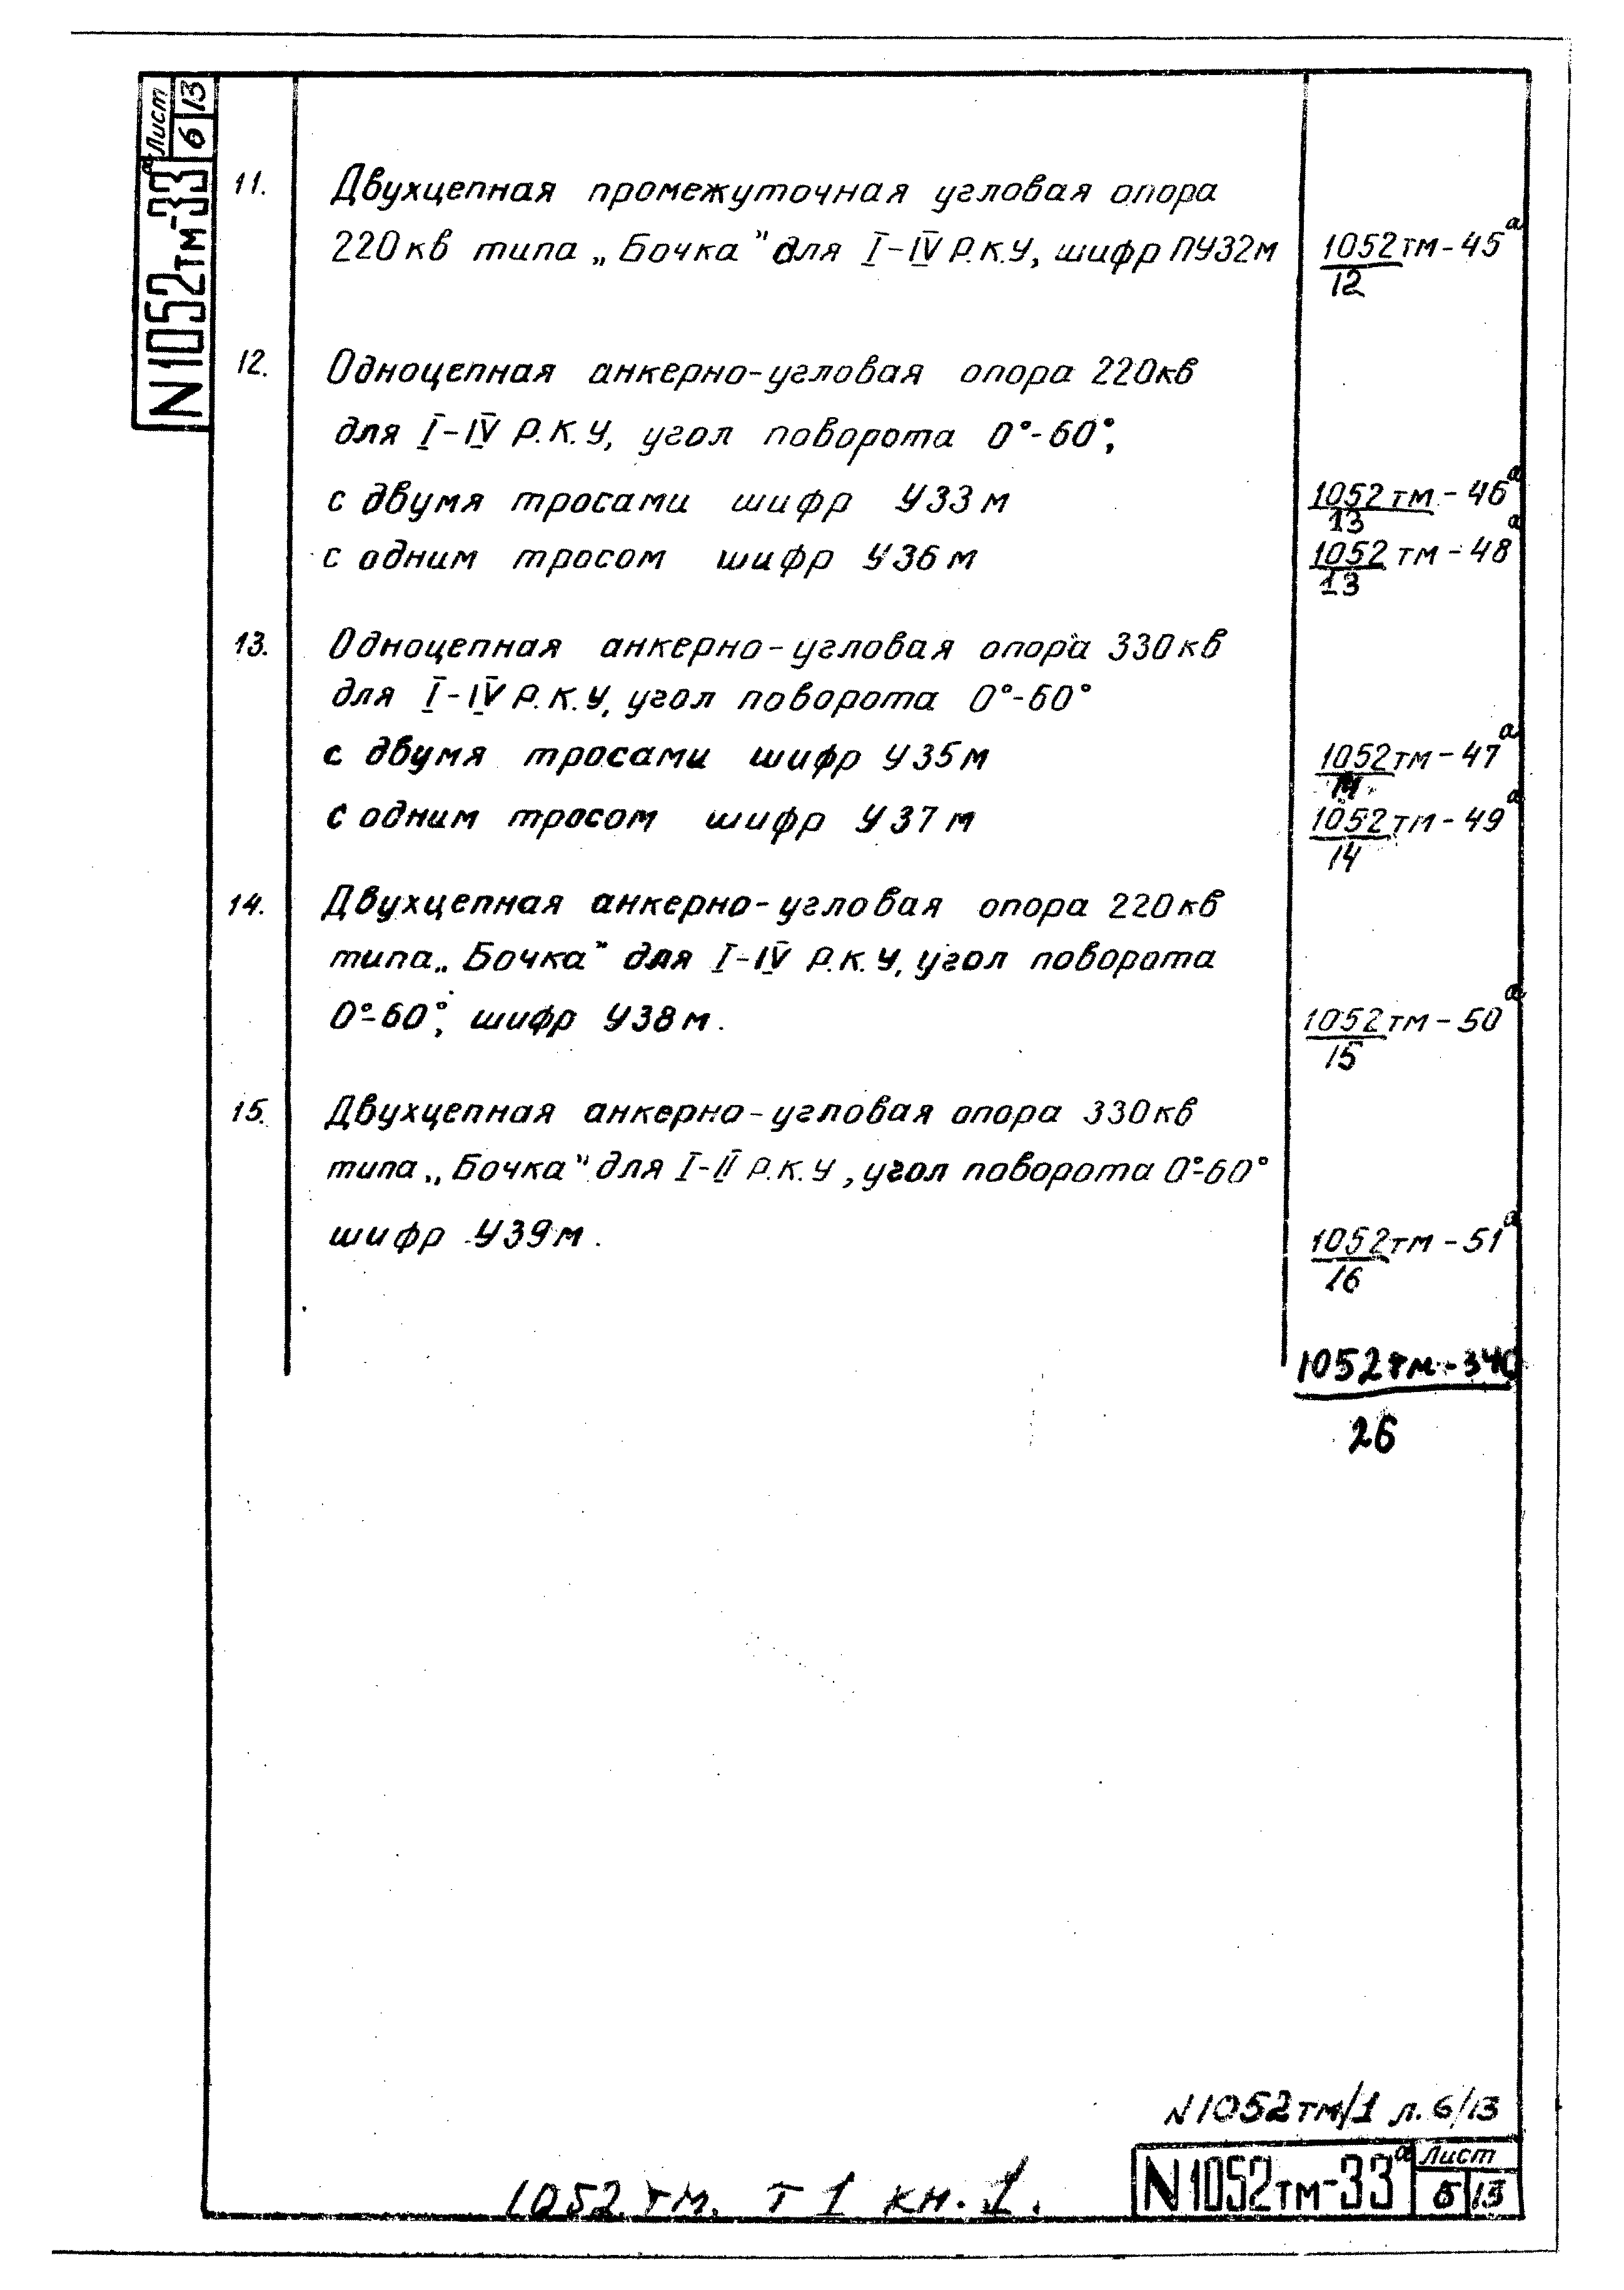 N1052тм-33а Лист 6 13
11. Двухцепная промежуточная угловая опора
220кв типа „Бочка" для I-IV Р.К.У, шифр ПУ32м 1052тм-45а
12
12. Одноцепная анкерно-угловая опора 220кв
для I-IV Р.К.У, угол поворота 0°-60°,
с двумя тросами шифр У33м 1052тм-46а
13
с одним тросом шифр У36м 1052тм-48а
13
13. Одноцепная анкерно-угловая опора 330кв
для I-IV Р.К.У, угол поворота 0°-60°
с двумя тросами шифр У35м 1052тм-47а
с одним тросом шифр У37м 1052тм-49а
14
14. Двухцепная анкерно-угловая опора 220кв
типа „Бочка" для I-IV Р.К.У, угол поворота
0°-60°, шифр У38м. 1052тм-50а
15
15. Двухцепная анкерно-угловая опора 330кв
типа „Бочка" для I-II Р.К.У, угол поворота 0°-60°
шифр У39м. 1052тм-51а
16
1052тм-340
26
N1052тм/1 л.6/13
1052 тм. т 1 кн. 1.
N1052тм-33а Лист 6 13